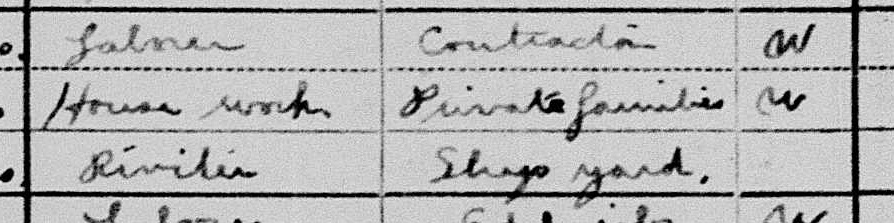 Laborer Contractor W
House work Private families W
Riviter Ships yard.
Laborer W